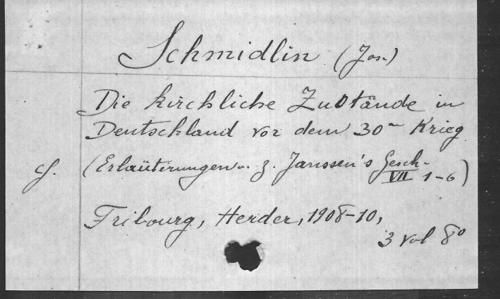 Schmidlin (Jos.)
Die kirchliche Zustände in
Deutschland vor dem 30en Krieg
cf. (Erläuterungen z. Janssen's Gesch.
VII 1-6)
Fribourg, Herder, 1908-10,
3 vol 8o